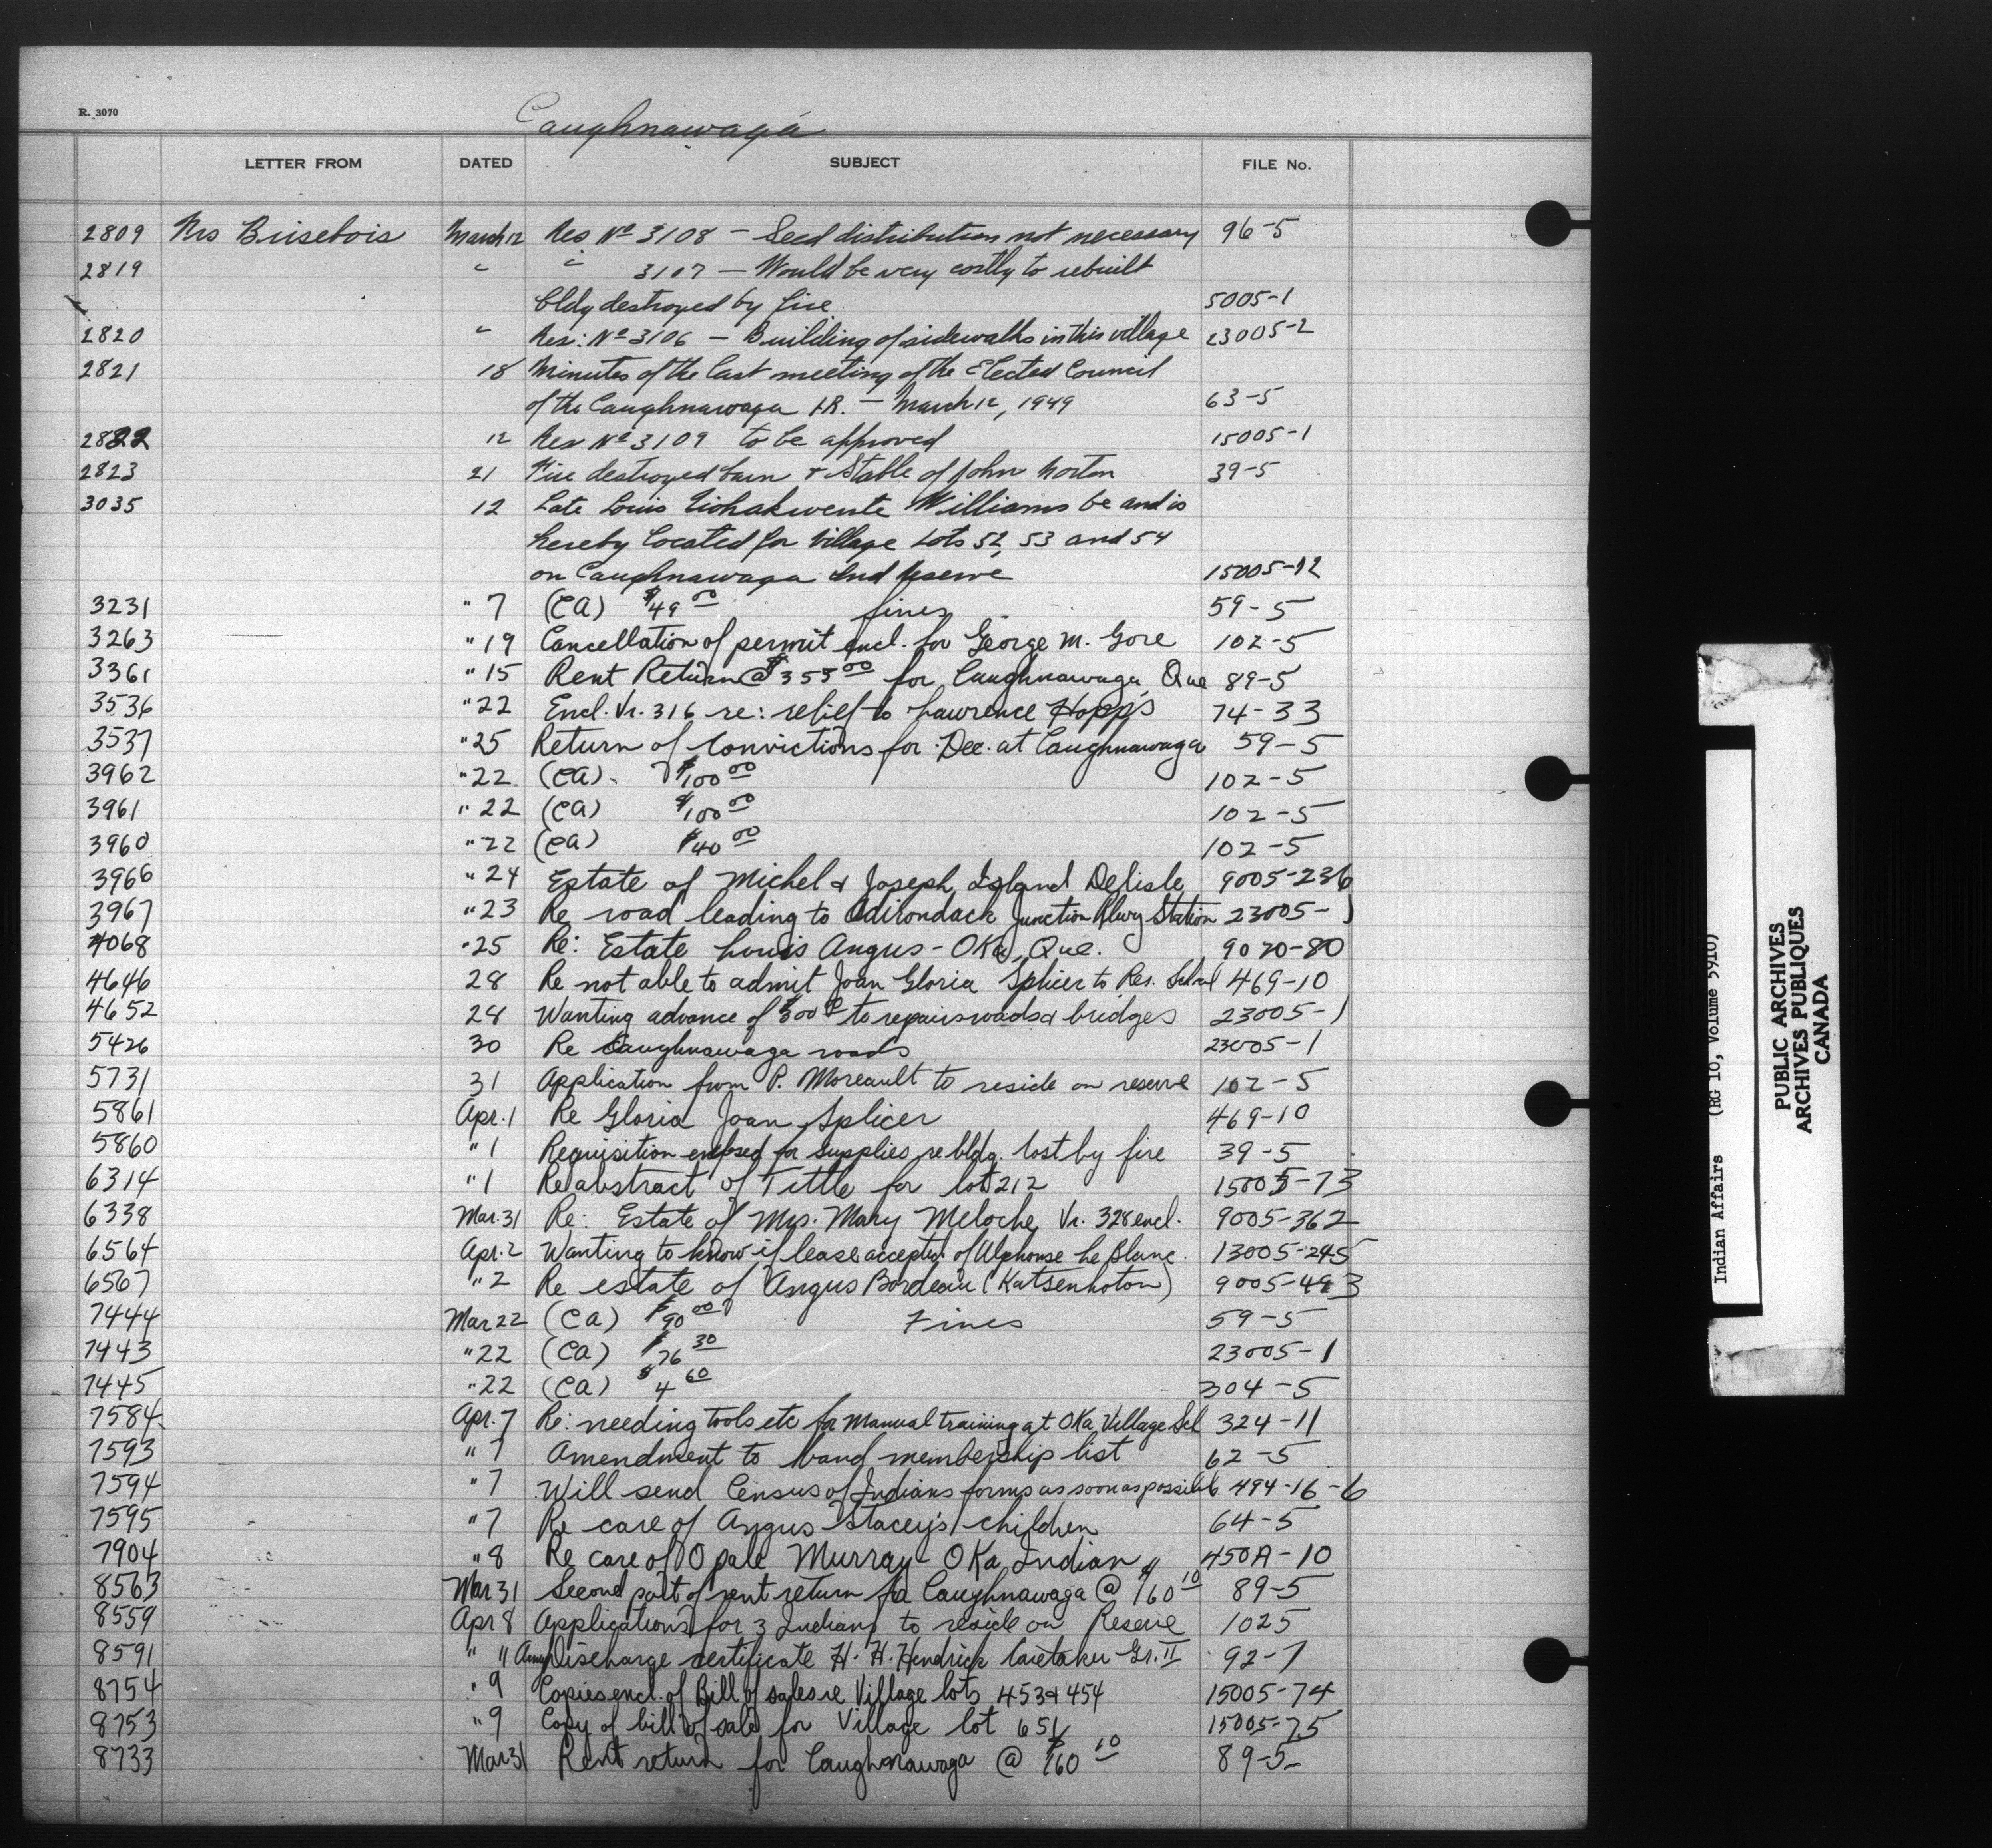 R. 3070
Caughnawaga
LETTER FROM DATED SUBJECT FILE No.
2809 Mrs Brisebois March 12 Res Nº 3108 - Seed distribution not necessary 96-5
2819 " " 3107 - Would be very costly to rebuilt
bldg destroyed by fire 5005-1
2820 " Res: Nº 3106 - Building of sidewalks in this village 23005-2
2821 18 Minutes of the last meeting of the Elected Council
of the Caughnawaga I.R. - March 12, 1949 63-5
2822 12 Res Nº 3109 to be approved 15005-1
2823 21 Fire destroyed barn & Stable of John Norton 39-5
3035 12 Late Louis Williams be and is
hereby located for Village Lots 52, 53 and 54
on Caughnawaga Ind Reserve 15005-12
3231 " 7 (CA) $49 00 fines 59-5
3263 " 19 Cancellation of permit encl. for George M. Gore 102-5
3361 " 15 Rent Return @ $355 00 for Caughnawaga, Que 89-5
3536 " 22 Encl. Vr. 316 re: relief to Lawrence Hopps 74-33
3537 " 25 Return of Convictions for Dec. at Caughnawaga 59-5
3962 " 22 (CA) $100 00 102-5
3961 " 22 (CA) $100 00 102-5
3960 " 22 (CA) $40 00 102-5
3966 " 24 Estate of Michel & Joseph Island Delisle 9005-236
3967 " 23 Re road leading to Adirondack Junction Rlwy Station 23005-1
4068 " 25 Re: Estate Louis Angus - OKa, Que. 9020-80
4646 28 Re not able to admit Joan Gloria Splicer to Res. School 469-10
4652 28 Wanting advance of to repairs roads & bridges 23005-1
5426 30 Re Caughnawaga roads 23005-1
5731 31 Application from P. Moreault to reside on reserve 102-5
5861 Apr. 1 Re Gloria Joan Splicer 469-10
5860 " 1 Requisition enclosed for supplies re bldg. lost by fire 39-5
6314 " 1 Re abstract of Tittle for lot 212 15005-73
6338 Mar. 31 Re: Estate of Mrs. Mary Meloche, Vr. 328 encl. 9005-362
6564 Apr. 2 Wanting to know if lease accepted of Alphonse Le Blanc. 13005-245
6567 " 2 Re estate of Angus Bordeau (Katsenhoton) 9005-493
7444 Mar 22 (CA) $90 00 Fines 59-5
7443 " 22 (CA) $76 30 23005-1
7445 " 22 (CA) $4 60 304-5
7584 Apr. 7 Re: needing tools etc for Manual training at OKa Village Scl 324-11
7593 " 7 Amendment to band membership list 62-5
7594 " 7 Will send Census of Indians forms as soon as possible 494-16-6
7595 " 7 Re care of Angus Stacey's children 64-5
7904 " 8 Re care of Opale Murray - OKa Indian 450A-10
8563 Mar 31 Second part of rent return for Caughnawaga @ $160 10 89-5
8559 Apr 8 Applications for 3 Indians to reside on Reserve 1025
8591 " " Army Discharge certificate H. H. Hendrick Caretaker Gr. II 92-7
8754 " 9 Copies encl. of Bill of sales re Village lots 453 & 454 15005-74
8753 " 9 Copy of bill of sale for Village lot 651 15005-75
8733 Mar 31 Rent return for Caughnawaga @ $160 10 89-5
Indian Affairs (RG 10, Volume 5910)
PUBLIC ARCHIVES
ARCHIVES PUBLIQUES
CANADA